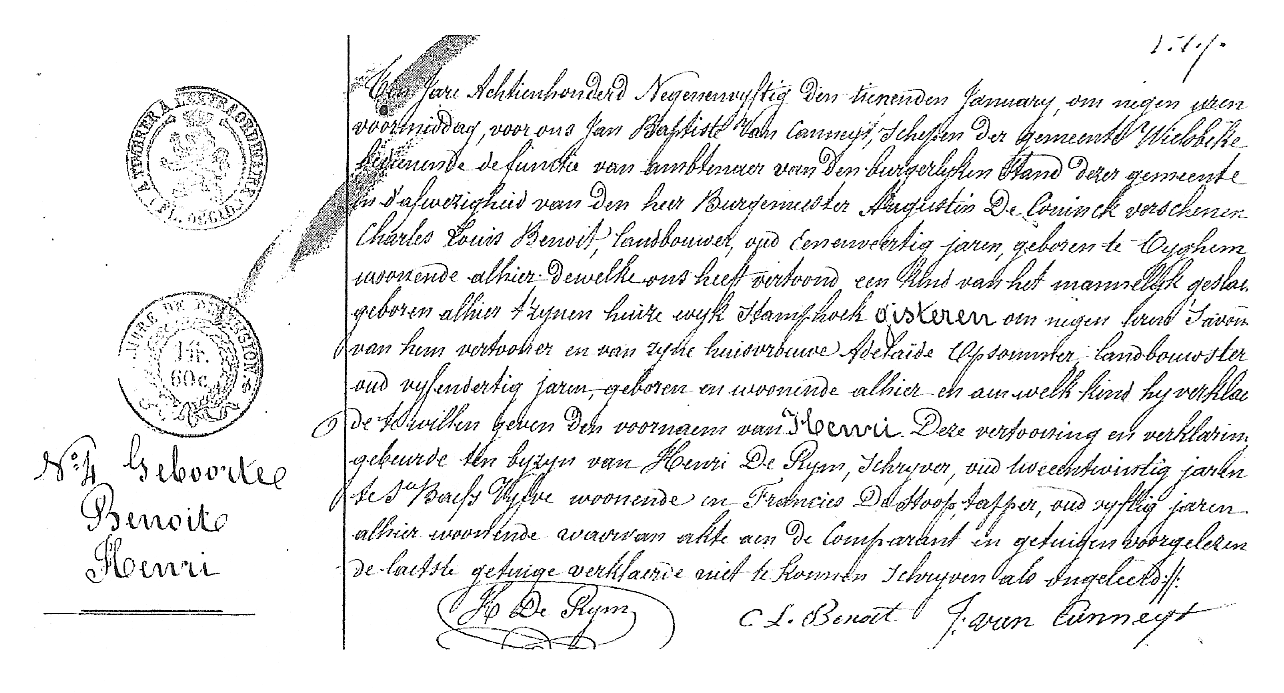 A TIMBRER A L'EXTRAORDINAIRE
N.º 4 Geboorte
Benoit
Henri
Jare Achtienhonderd Negenenvyftig den tienenden January, om negen uren
voormiddag, voor ons Jan Baptiste Van Canneyt, Schepen der gemeente Wielsbeke
bedienende de functie van ambtenaer van den burgerlyken Stand dezer gemeente
in d'afwezigheid van den heer Burgemeester Augustin De Coninck verschenen
Charles Louis Benoit, landbouwer, oud eenenveertig jaren, geboren te Oyghem
woonende alhier dewelke ons heeft vertoond een kind van het mannelyk
geboren alhier t'zynen huize wyk Stamphoek gisteren om negen uren 'savon
van hem vertooner en van zyne huisvrouwe Adelaïde Opsommer, landbouwster
oud vyfendertig jaren, geboren en woonende alhier en aen welk kind hy verklae
de te willen geven den voornaem van Henri. Deze vertooning en verklaring
gebeurde ten byzyn van Henri De Rym, Schryver, oud tweeentwintig jaren
te St Baefs Vyve woonende en Francies De Stoop, tapper, oud vyftig jaren
alhier woonende waervan akte aen de Comparant en getuigen voorgelezen
de laetste getuige verklaerde niet te konnen Schryven als ongeleerd://:
H De Rym C. L. Benoit J. van Canneyt